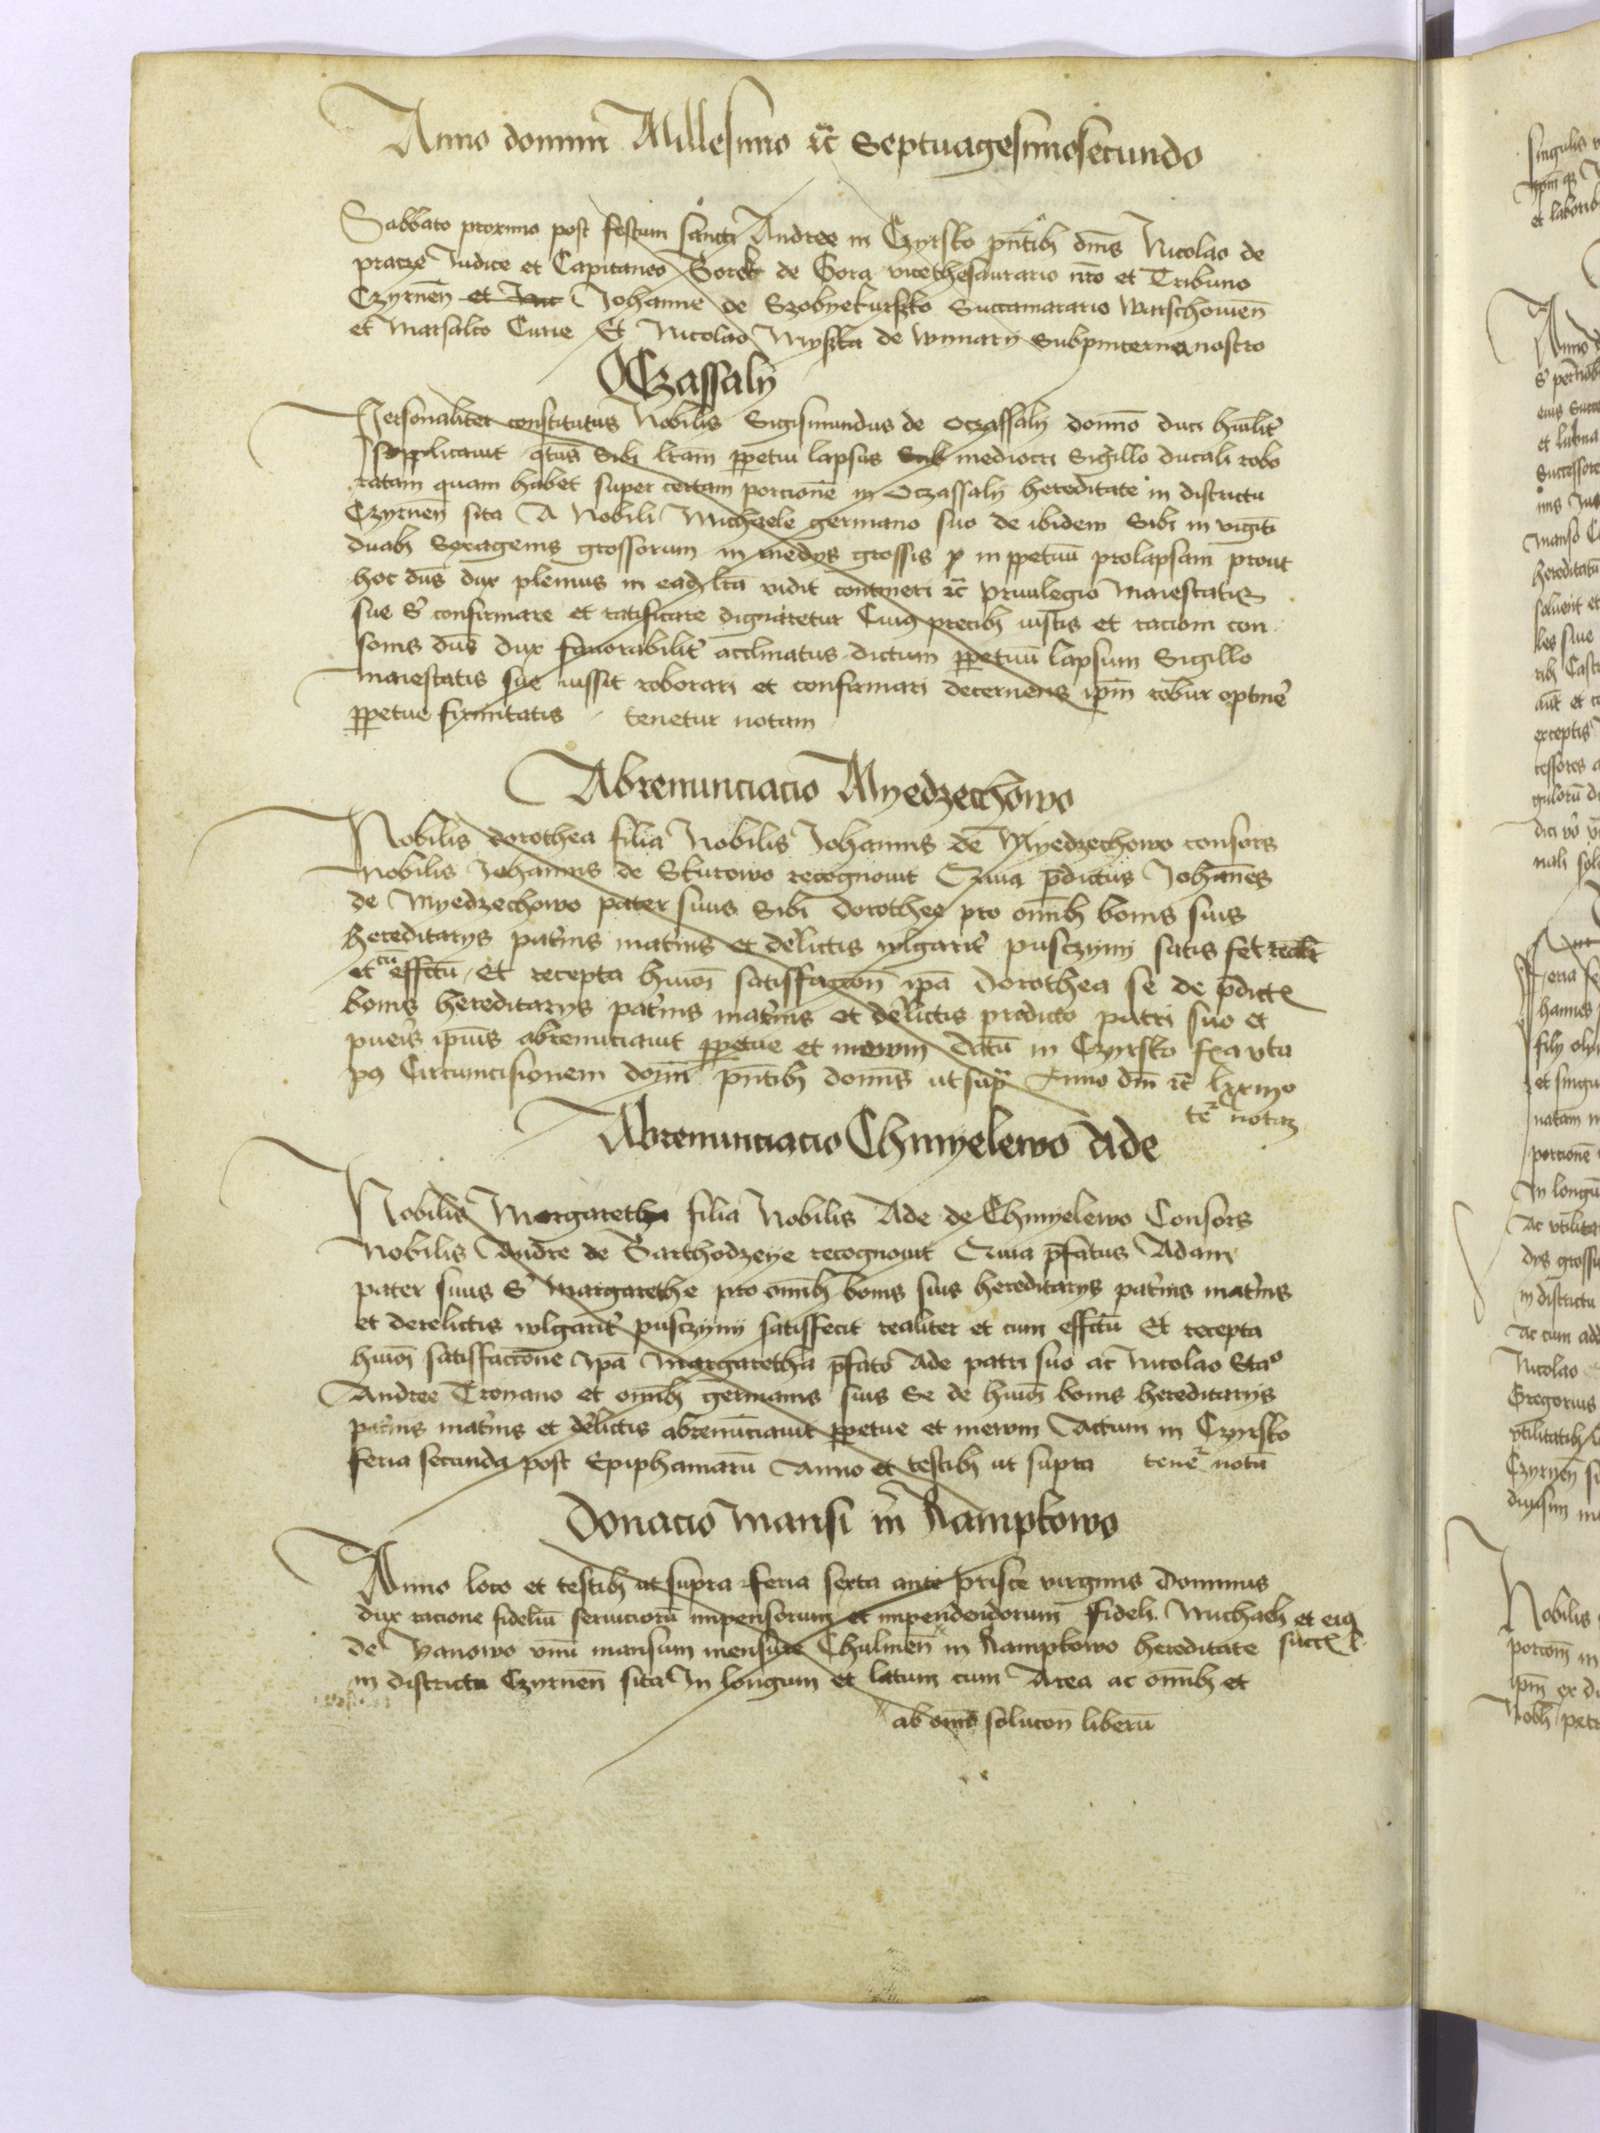 Anno domini Millesimo rc̄ Septuagesimosecundo
Sabbato proximo post festum sancti Andree in Czyrsko pn̄tib dn̄is Nicolao de
pracze Iudice et Capitaneo Borek de Gora vicethesaurario nr̄o et Tribuno
Czyrnen̄ et Johanne de Szobyekursko Succamerario Warschouien̄
et Marsalco Curie Et Nicolao Myszka de wynary Subpincerna nostro
Oczassaly
Personaliter constitutus Nobilis Sigismundus de Oczassaly domīo duci hūilit̄
supplicauit qtus̄ Sibi lr̄am ppetui lapsus Sub mediocri Sigillo ducali robo
ratam quam habet super certam porcione in Oczassaly hereditate in districtu
Czyrnen̄ sita A Nobili Michaele germano suo de ibidem Sibi in vigiti
duab Sexagenis grossorum in medys grossis p in ppetuū prolapsam prout
hoc dn̄s dux plenius in ead lr̄a vidit contineri rc̄ priuilegio Maiestatis
sue S confirmare et ratificare dignaretur Cuiq precib iustis et racioni con
sonis dn̄s dux fauorabilit̄ acclinatus dictum ppetuū lapsum Sigillo
maiestatis sue iussit roborari et confirmari decernens ipm̄ robur optine
ppetue firmitatis tenetur notam
Abrenunciacio Myedzechowo
Nobilis dorothea filia Nobilis Johannis de Myedzechowo consors
Nobilis Johannis de Skurowo recognouit Quia pdictus Johannes
de Myedzechowo pater suus Sibi dorothee pro omīb bonis suis
hereditarys pat̄nis mat̄nis et delictis wlgarit̄ pusczyny satis fet realr̄
et cū effctū Et recepta huiōi satisfaccōn̄ ipā Dorothea se de pdict
bonis hereditarys pat̄nis mat̄nis et delictis predicto patri suo et
pueris ipius abrenūciauit ppetue et inewm datū in Czyrsko fxa vta
pq Circumcisionem domī pn̄tib domīs ut supr Anno dm̄ rc̄ lxxiijo
te notaz
Abrenunciacio Chmyelewo Ade
Nobilis Margaretha filia Nobilis Ade de Chmyelewo Consors
Nobilis Andre de Barthodzeye recognouit Quia pfatus Adam
pater suus S Margarethe pro omīb bonis suis hereditarys pat̄nis mat̄nis
et derelictis wlgarit̄ pusczyny satisfecit realiter et cum effctū Et recepta
huiōi satisfaccione ipā Margaretha pfato Ade patri suo ac Nicolao Stao
Andree Troyano et omīb germanis suis Se de huiōi bonis hereditarys
pat̄nis mat̄nis et delictis abrenūciauit ppetue et inewm Actum in Czyrsko
feria secunda post Epiphaniarū Anno et testib ut supra tene notū
Donacio Mansi in Ramptowo
Anno loco et testib ut supra feria sexta ante prisce virginis Dominus
dux racione fideliū seruiciorū impensorum et impendendorum fideli Michaeli et eiq
de Yanowo vnū mansum mensure Chulmen̄ in Ramptowo hereditate succ
in districtu Czyrnen̄ sita In longum et latum cum Area ac omīb et
ab omī solucōn liberū